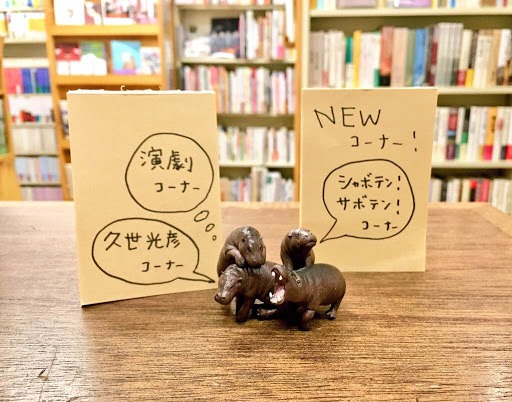 演劇
コーナー
久世光彦
コーナー
NEW
コーナー!
シャボテン!
サボテン!
コーナー